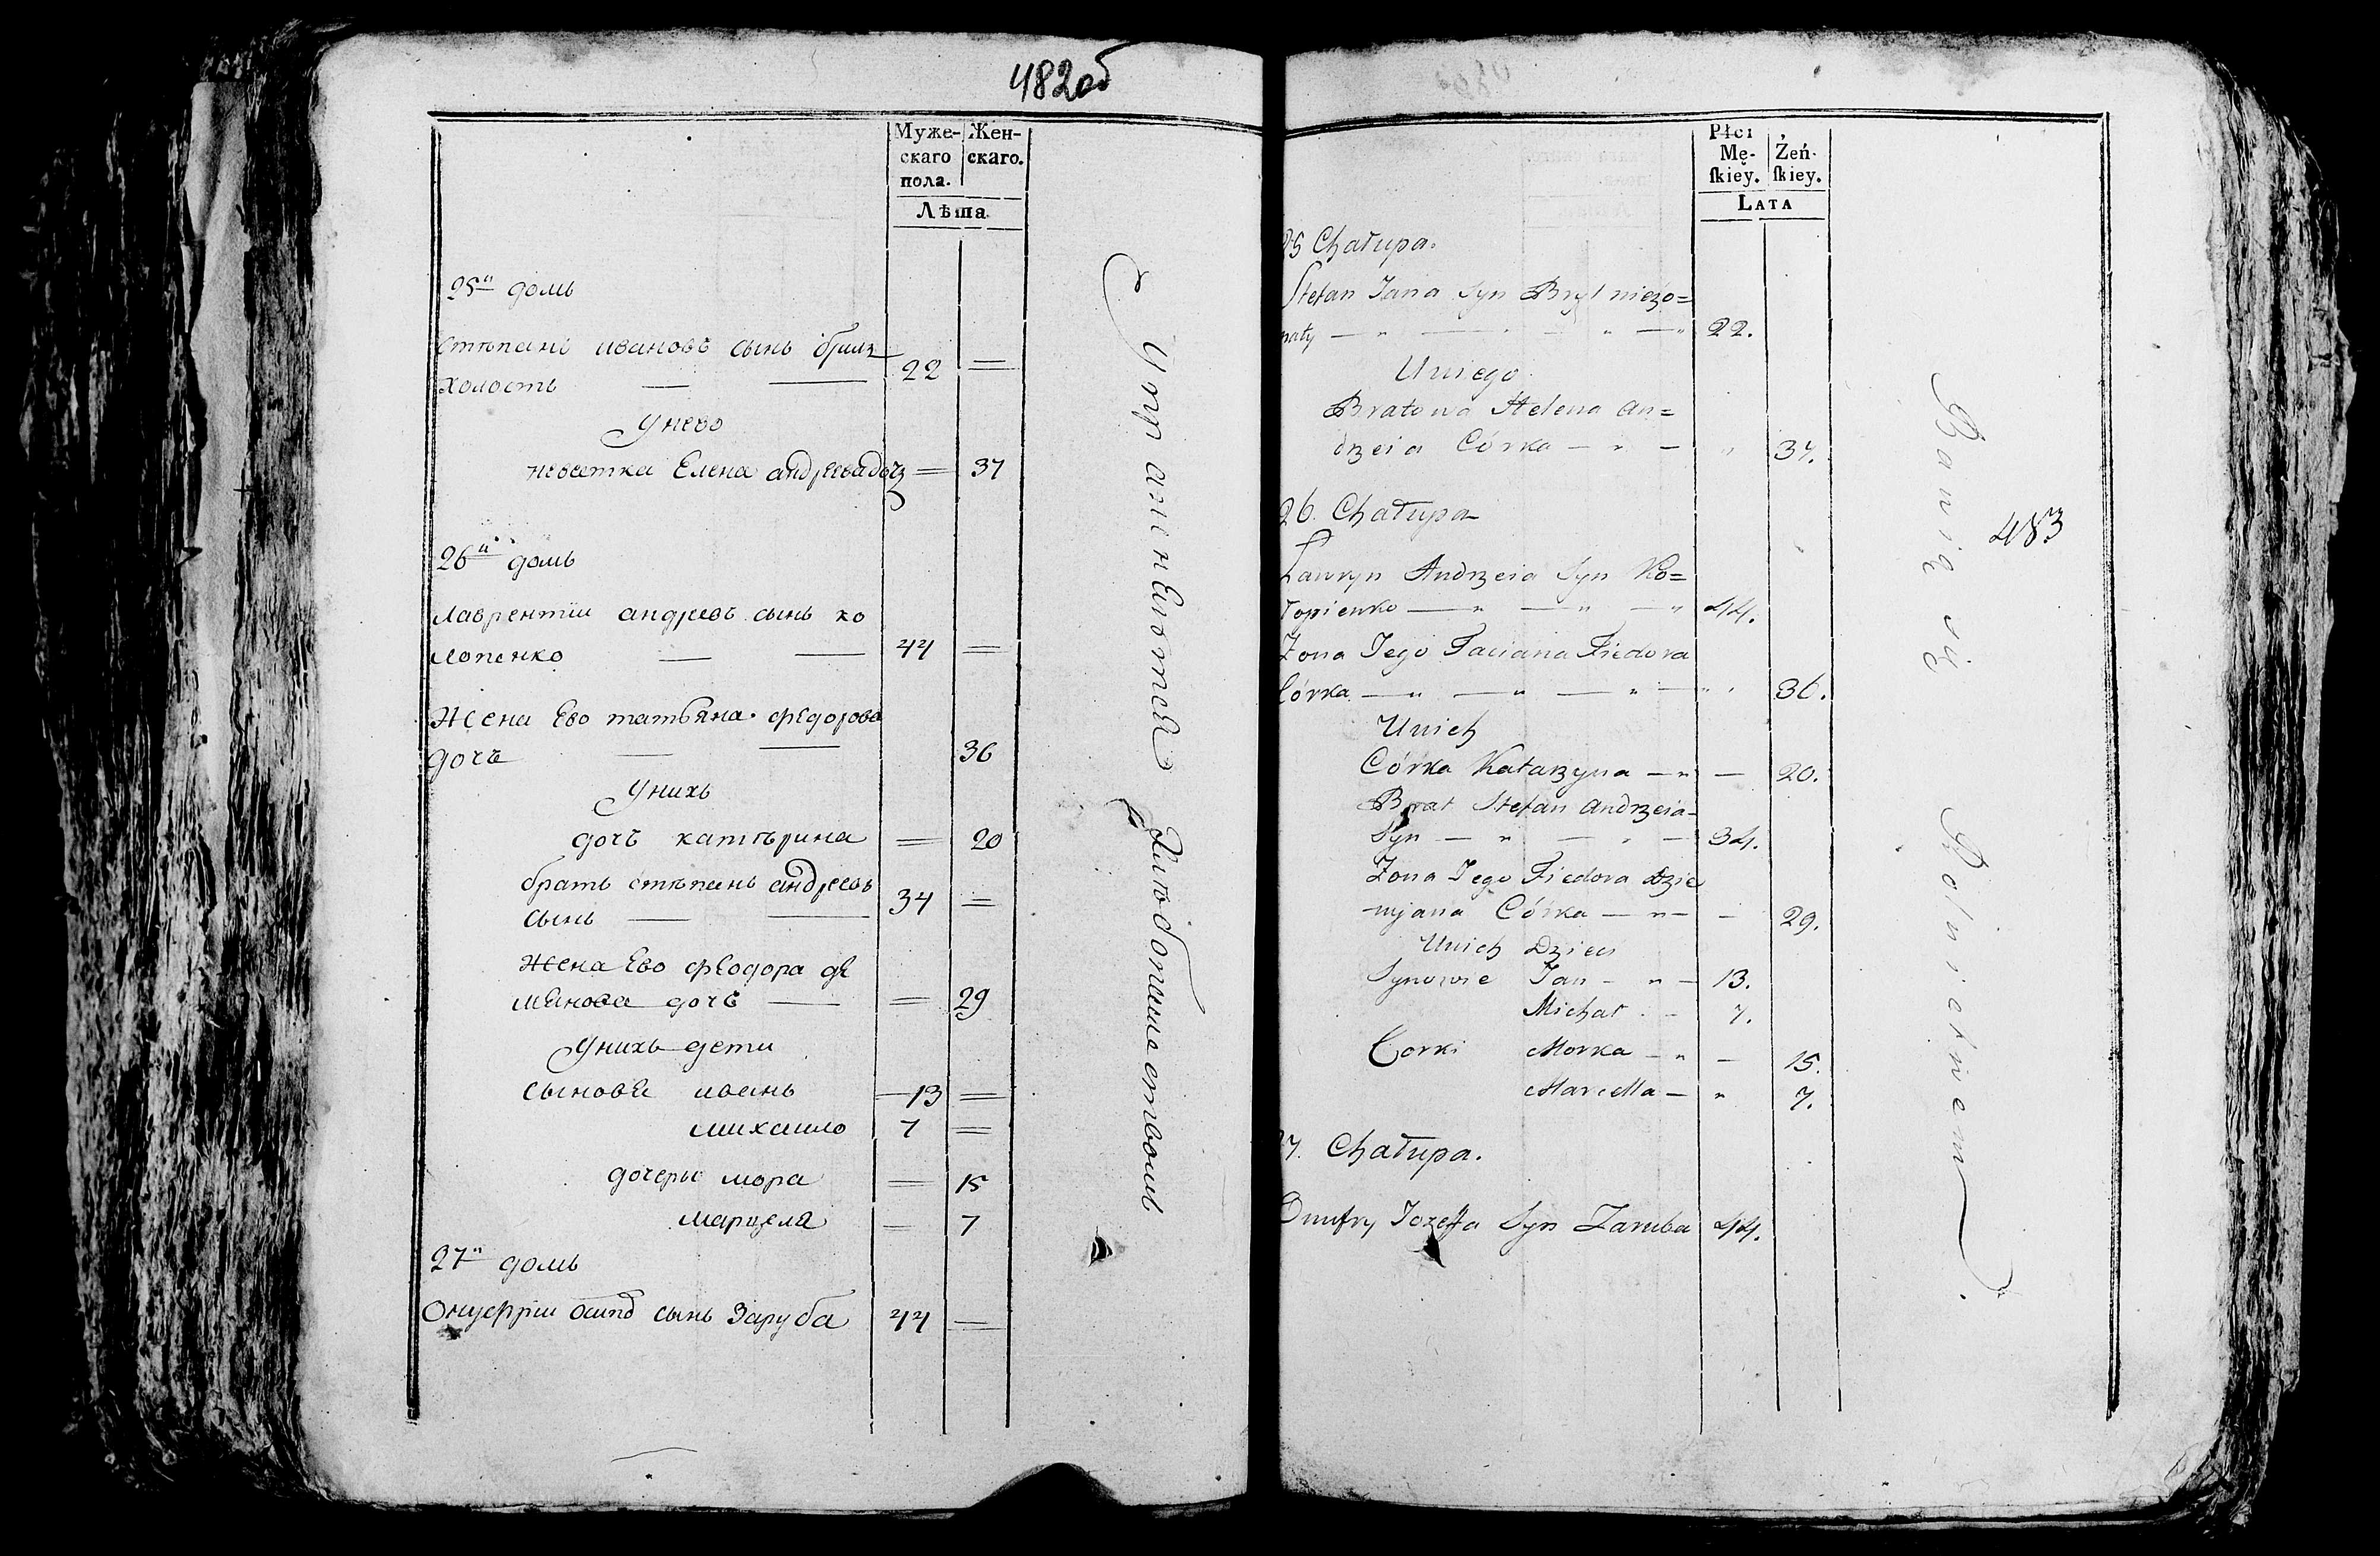 482об
Муже- Жен-
скаго скаго.
пола.
Лѣта.
25й домъ
Стѣпанъ ивановъ сынъ брил
холостъ — — 22 =
Унево
невестка Елена андреевадочь = 37
26й домъ
Лаврентии андреевъ сынъ ко
лопенко — — 44 =
Жена Ево татьяна федорова
дочь — — 36
Унихъ
дочь катѣрина = 20
братъ стѣпанъ андреевъ
сынъ — — 34 =
Жена Ево феодора де
мянова дочь — = 29
Унихъ дети
Сыновья иванъ — 13 =
михаило 7 =
дочеры мора = 15
марцеля — 7
27й домъ
Онуфрии осипо сынъ Заруба 44 =
Упражняются
Хлѣбопашествомъ
483
Płci
Mę- Żeń-
ſkiey. ſkiey.
LATA
25 Chałupa.
Stefan Jana Syn Bryl nieżo=
naty — " — " — " — " 22.
Uniego
Bratowa Helena An=
drzeia Córka — " — " 37.
26. Chałupa
Ławryn Andrzeia Syn Ko=
łopienko — " — " — " 44.
Żona Jego Taciana Fiedora
Córka — " — " — " — " 36.
Unich
Córka Katarzyna — " — 20.
Brat Stefan Andrzeia
Syn — " — " — 34.
Żona Jego Fiedora Dzie
mjana Córka — " — — 29.
Unich Dzieci
Synowie Jan — " — 13.
Michał — 7.
Corki Morka — " — 15.
Marcella — " 7.
27. Chałupa.
Onufry Jozeffa Syn Zaruba 44.
Bawią się
Rolnictwem